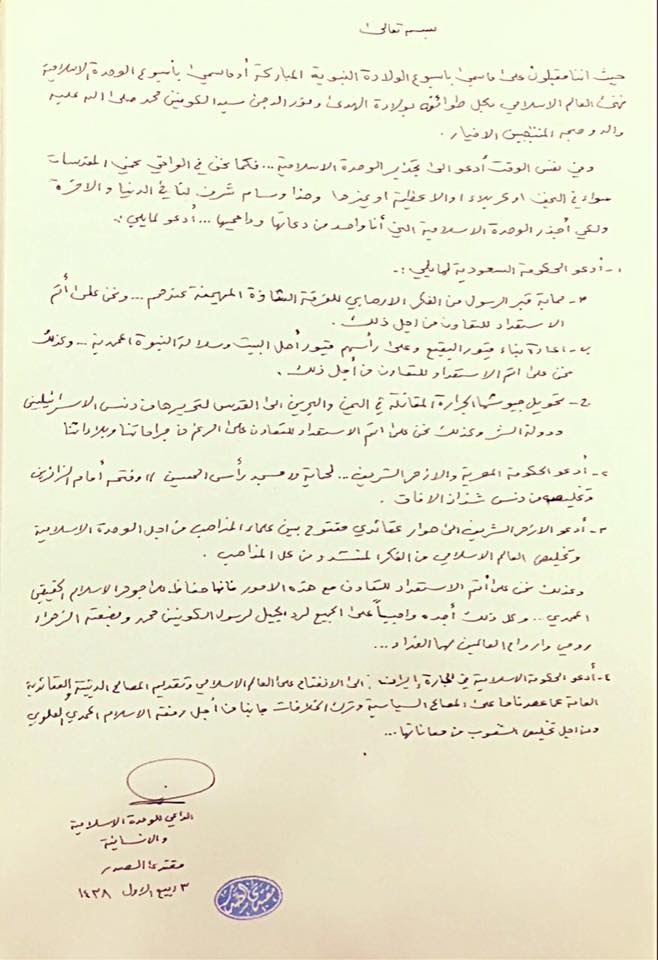 بسمه تعالى
حيث اننا مقبلون على ما سمي باسبوع الولادة النبوية المباركة أو ما سمي بأسبوع الوحدة الاسلامية
نهنئ العالم الاسلامي بكل طوائفه بولادة الهدى ونور الدجى سيد الكونين محمد صلى الله عليه
وآله وصحبه المنتجبين الاخيار .
وفي نفس الوقت أدعو الى تجذير الوحدة الاسلامية ... فكما نحن في الواقي نحمي المقدسات
سواء في النجف او كربلاء او الاعظمية او غيرها وهذا وسام شرف لنا في الدنيا والآخرة
ولكي أجذر الوحدة الاسلامية التي أنا واحد من دعاتها وداعميها ... أدعو لمايلي :.
١- أدعو الحكومة السعودية لمايلي :-
أ- حماية قبر الرسول من الفكر الارهابي للفرقة الشاذة المهيمنة عندهم ... ونحن على أتم
الاستعداد للتعاون من اجل ذلك .
ب- اعادة بناء قبور البقيع وعلى رأسهم قبور أهل البيت وسلالة النبوة المحمدية ... وكذلك
نحن على اتم الاستعداد للتعاون من أجل ذلك .
ج- تحويل جيوشها الجرارة المقاتلة في اليمن والبحرين الى القدس لتحريرها من دنس الاسرائيليين
ودولة الشر وكذلك نحن على اتم الاستعداد للتعاون على الرغم من جراحاتنا وبلاءاتنا
٢- أدعو الحكومة المصرية والازهر الشريف ... لحماية مسجد رأس الحسين وفتحه أمام الزائرين
وتخليصه من دنس شذاذ الآفاق .
٣- أدعو الازهر الشريف الى حوار عقائدي مفتوح بين علماء المذاهب من اجل الوحدة الاسلامية
وتخليص العالم الاسلامي من الفكر المتشدد من كل المذاهب .
وكذلك نحن على أتم الاستعداد للتعاون مع هذه الامور فانها حفاظ على جوهر الاسلام الحقيقي
المحمدي ... وكل ذلك أجده واجباً على الجميع لرد الجميل لرسول الكونين محمد وبضعته الزهراء
روحي وارواح العالمين لها الفداء ...
٤- أدعو الحكومة الاسلامية في الجارة إيران : الى الانفتاح على العالم الاسلامي وتقديم المصالح الدينية والعقائدية
العامة على المصالح السياسية وترك الخلافات جانباً من أجل رفعة الاسلام المحمدي العلوي
ومن اجل تخليص الشعوب من معاناتها ...
الداعي للوحدة الاسلامية
والانسانية
مقتدى الصدر
٣ ربيع الاول ١٤٣٨